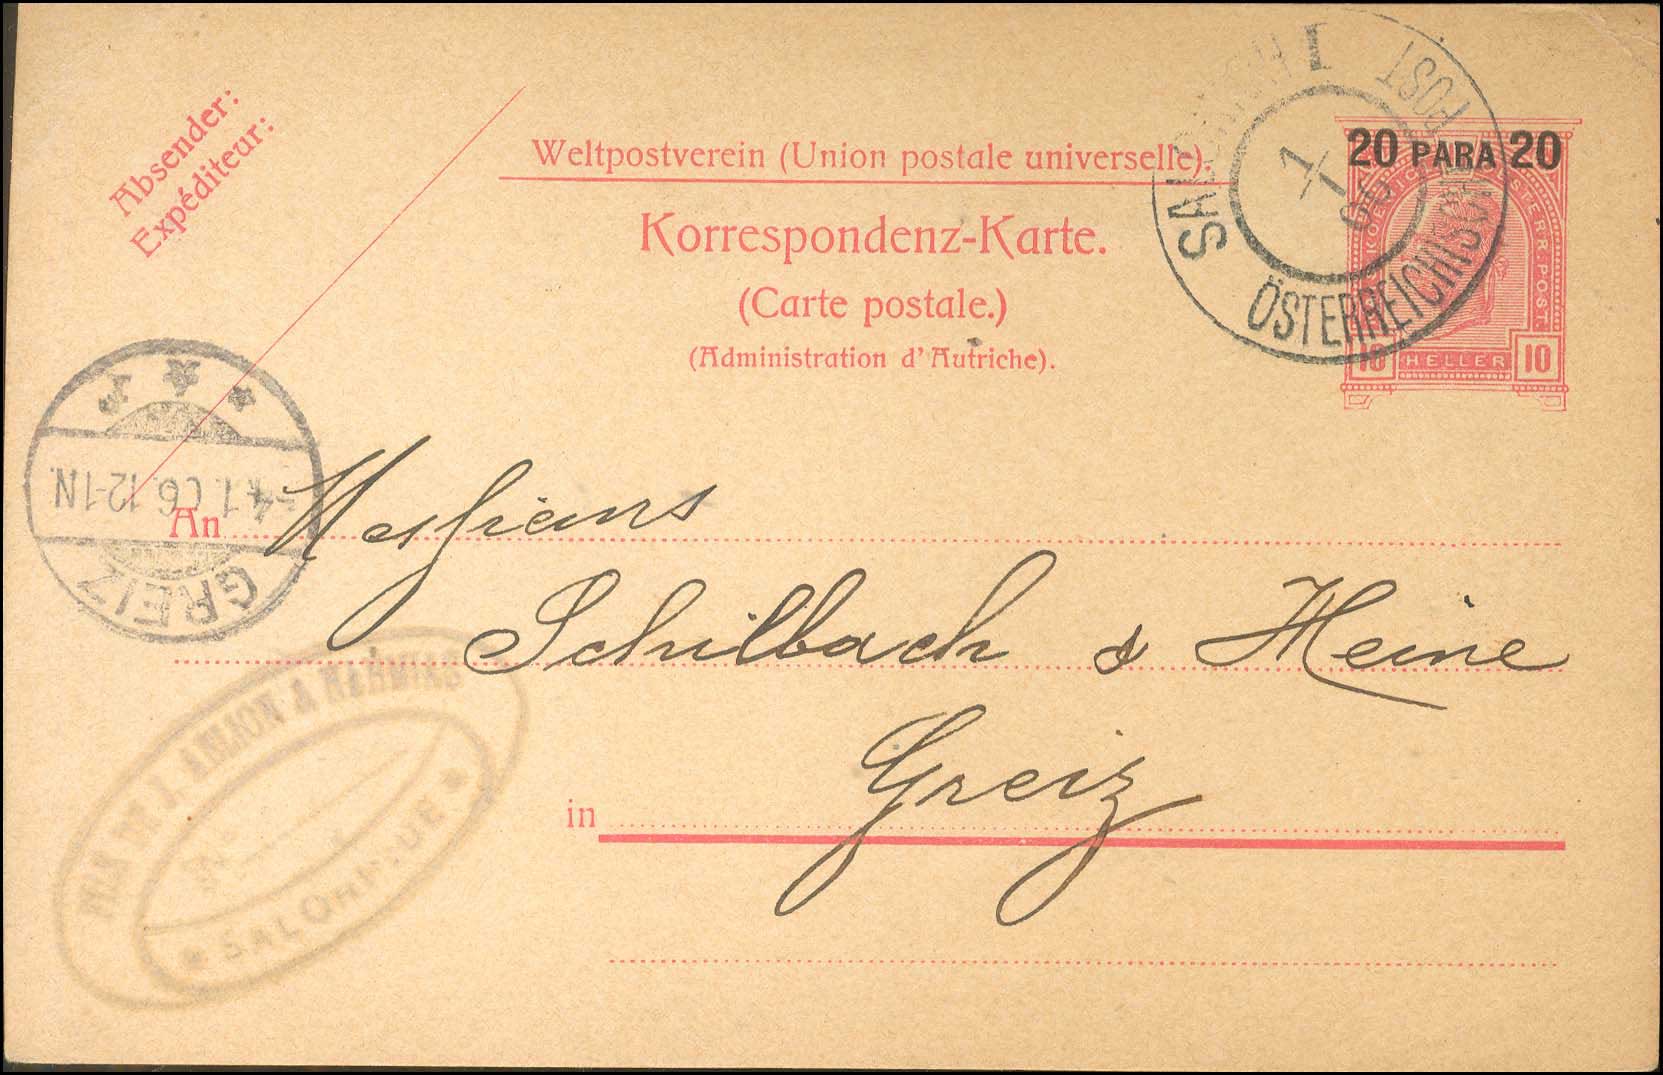 Absender:
Expéditeur:
Weltpostverein (Union postale universelle).
Korrespondenz-Karte.
(Carte postale.)
(Administration d'Autriche).
20 PARA 20
10 HELLER 10
I
ÖSTERREICHISCHE POST
1/1
06
GREIZ
-4.1.06.12-1N.
An Messieurs
Schilbach & Heine
in Greiz
SALONIQUE